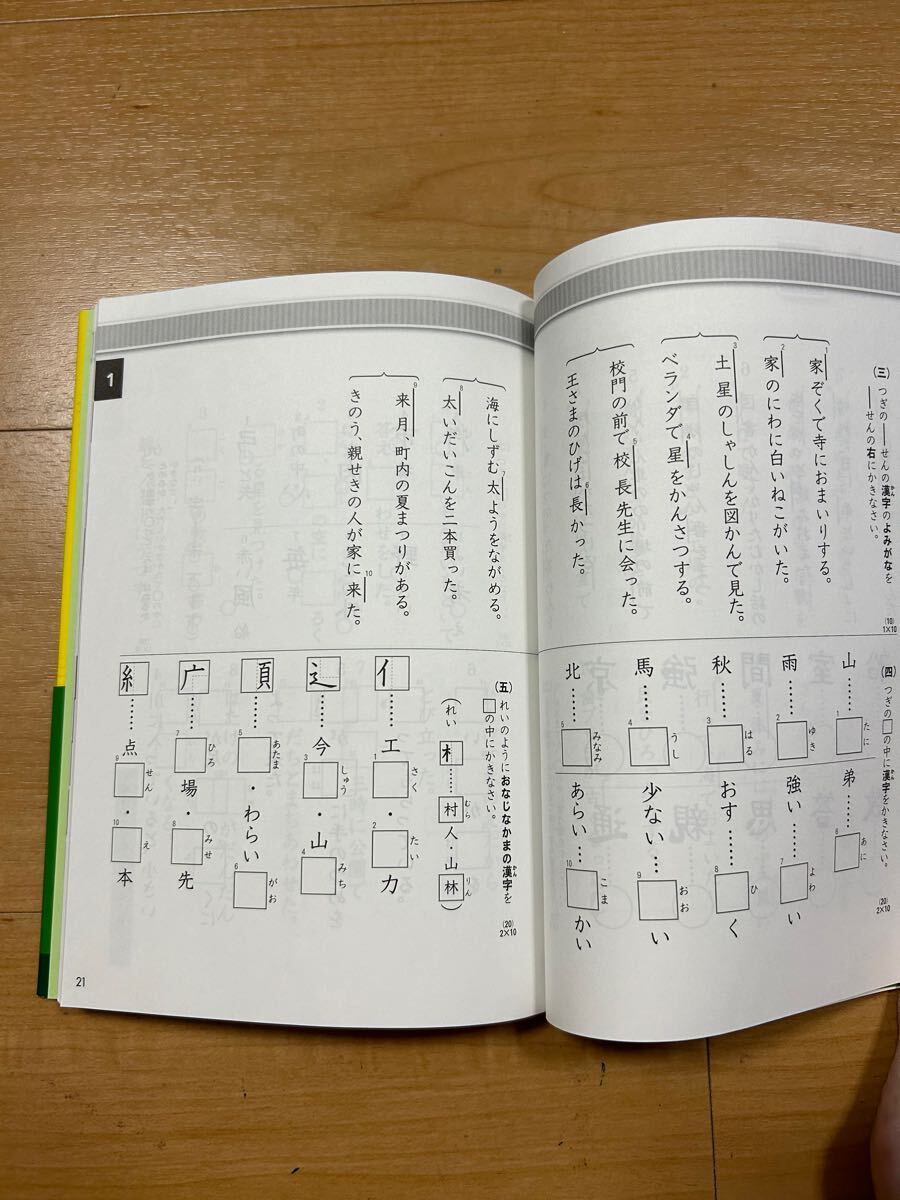 (三) つぎの──せんの漢字のよみがなを
──せんの右にかきなさい。
(10)
1×10
1 家ぞくで寺におまいりする。
2 家のにわに白いねこがいた。
3 土星のしゃしんを図かんで見た。
ベランダで4星をかんさつする。
校門の前で5校長先生に会った。
王さまのひげは6長かった。
海にしずむ7太ようをながめる。
8 太いだいこんを二本買った。
9 来月、町内の夏まつりがある。
きのう、親せきの人が家に10来た。
(四) つぎの□の中に漢字をかきなさい。
(20)
2×10
山……1□たに
雨……2□ゆき
秋……3□はる
馬……4□うし
北……5□みなみ
弟……6□あに
強い……7□よわい
おす……8□ひく
少ない…9□おおい
あらい…10□こまかい
(五) れいのようにおなじなかまの漢字を
□の中にかきなさい。
(20)
2×10
(れい 木……村むら人・山林りん)
亻……エ1□さく・2□たいカ
辶……今3□しゅう・山4□みち
頁……5□あたま・わらい6□がお
广……7□ひろ場・8□みせ先
糸……点9□せん・10□え本
1
21